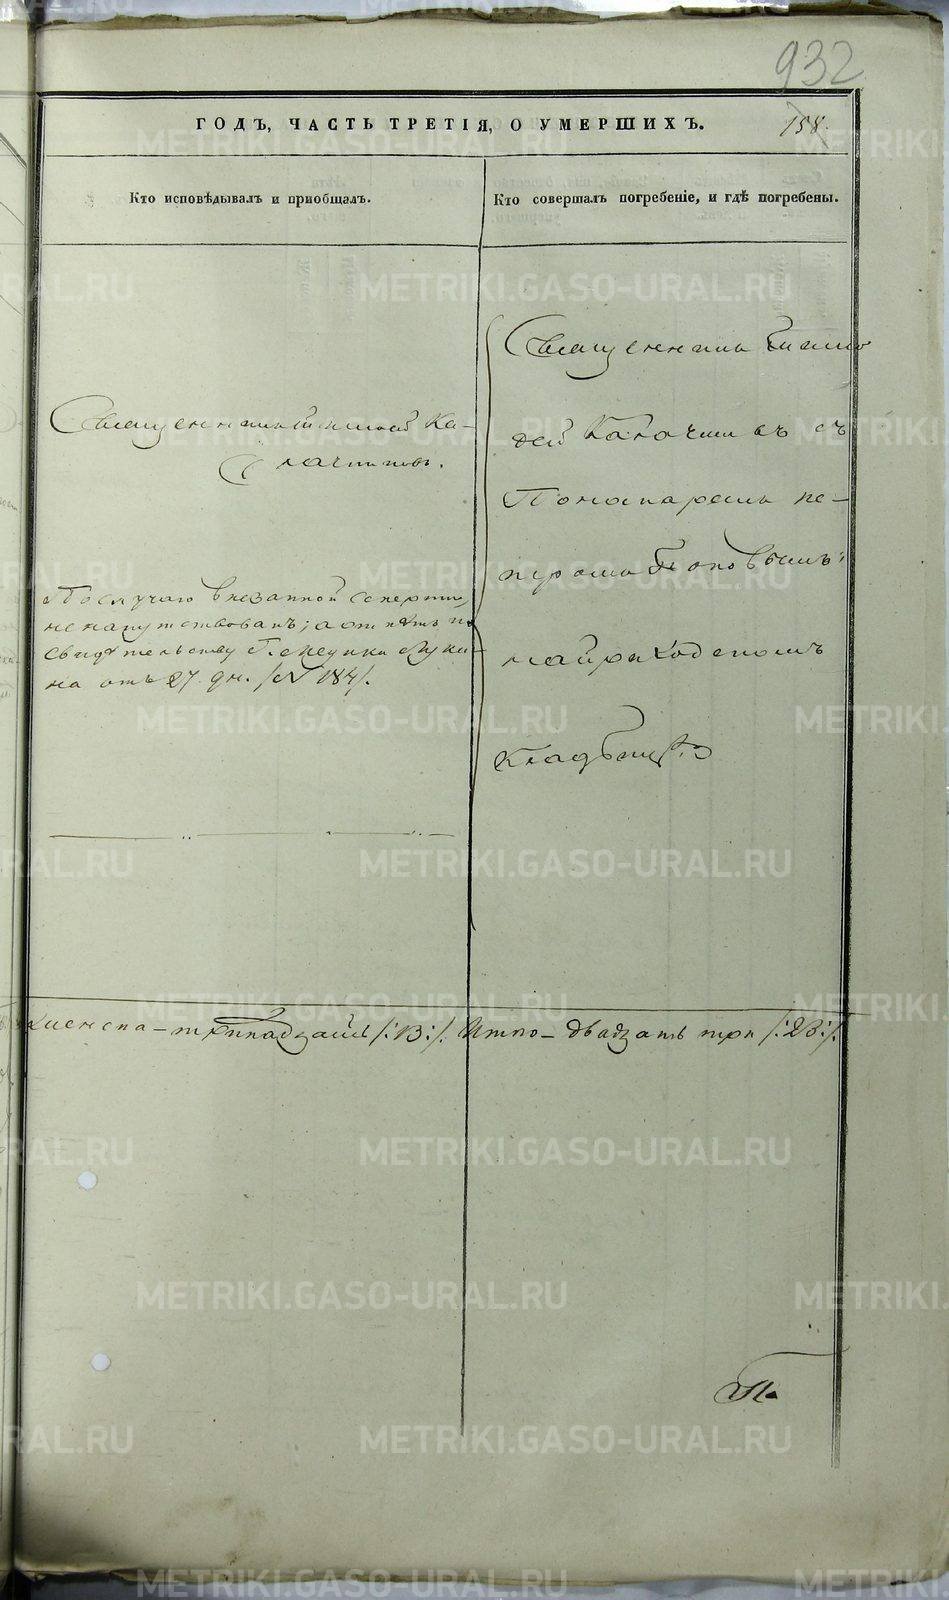 932
ГОДЪ, ЧАСТЬ ТРЕТІЯ, О УМЕРШИХЪ.
158
Кто исповѣдывалъ и пріобщалъ.
Кто совершалъ погребеніе, и гдѣ погребены.
Священникъ Тимофей Ка-
лачниковъ.
По случаю внезапной смерти,
не напутствованъ; а отпѣтъ по
свидѣтельству Г. Медика Луки-
на отъ 27 дн. /№ 184/.
Священникъ Тимо
фей Калачниковъ съ
Пономаремъ Пе-
тромъ Поповымъ
на приходскомъ
кладбищѣ
женска – тринадцать /:13:/. Итого – двадцать три /:23:/.
METRIKI.GASO-URAL.RU